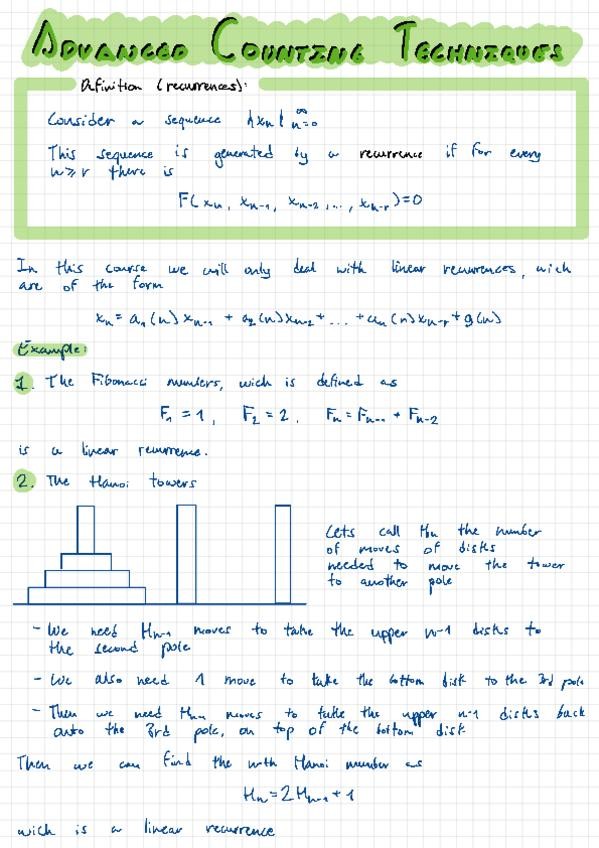 ADVANCED COUNTING TECHNIQUES
Definition (recurrences):
Consider a sequence {xₙ}ₙ₌₀^∞
This sequence is generated by a recurrence if for every
n ≥ r there is
F(xₙ, xₙ₋₁, xₙ₋₂, ..., xₙ₋ᵣ)=0
In this course we will only deal with linear recurrences, wich
are of the form
xₙ = a₁(n)xₙ₋₁ + a₂(n)xₙ₋₂ + ... + aₙ(n)xₙ₋ᵣ + g(n)
Example:
1. The Fibonacci numbers, wich is defined as
F₁ = 1, F₂ = 2, Fₙ = Fₙ₋₁ + Fₙ₋₂
is a linear recurrence.
2. The Hanoi towers
Lets call Hₙ the number
of moves of disks
needed to move the tower
to another pole
- We need Hₙ₋₁ moves to take the upper n-1 disks to
the second pole
- We also need 1 move to take the bottom disk to the 3rd pole
- Then we need Hₙ₋₁ moves to take the upper n-1 disks back
onto the 3rd pole, on top of the bottom disk
Then we can find the n-th Hanoi number as
Hₙ = 2Hₙ₋₁ + 1
wich is a linear recurrence